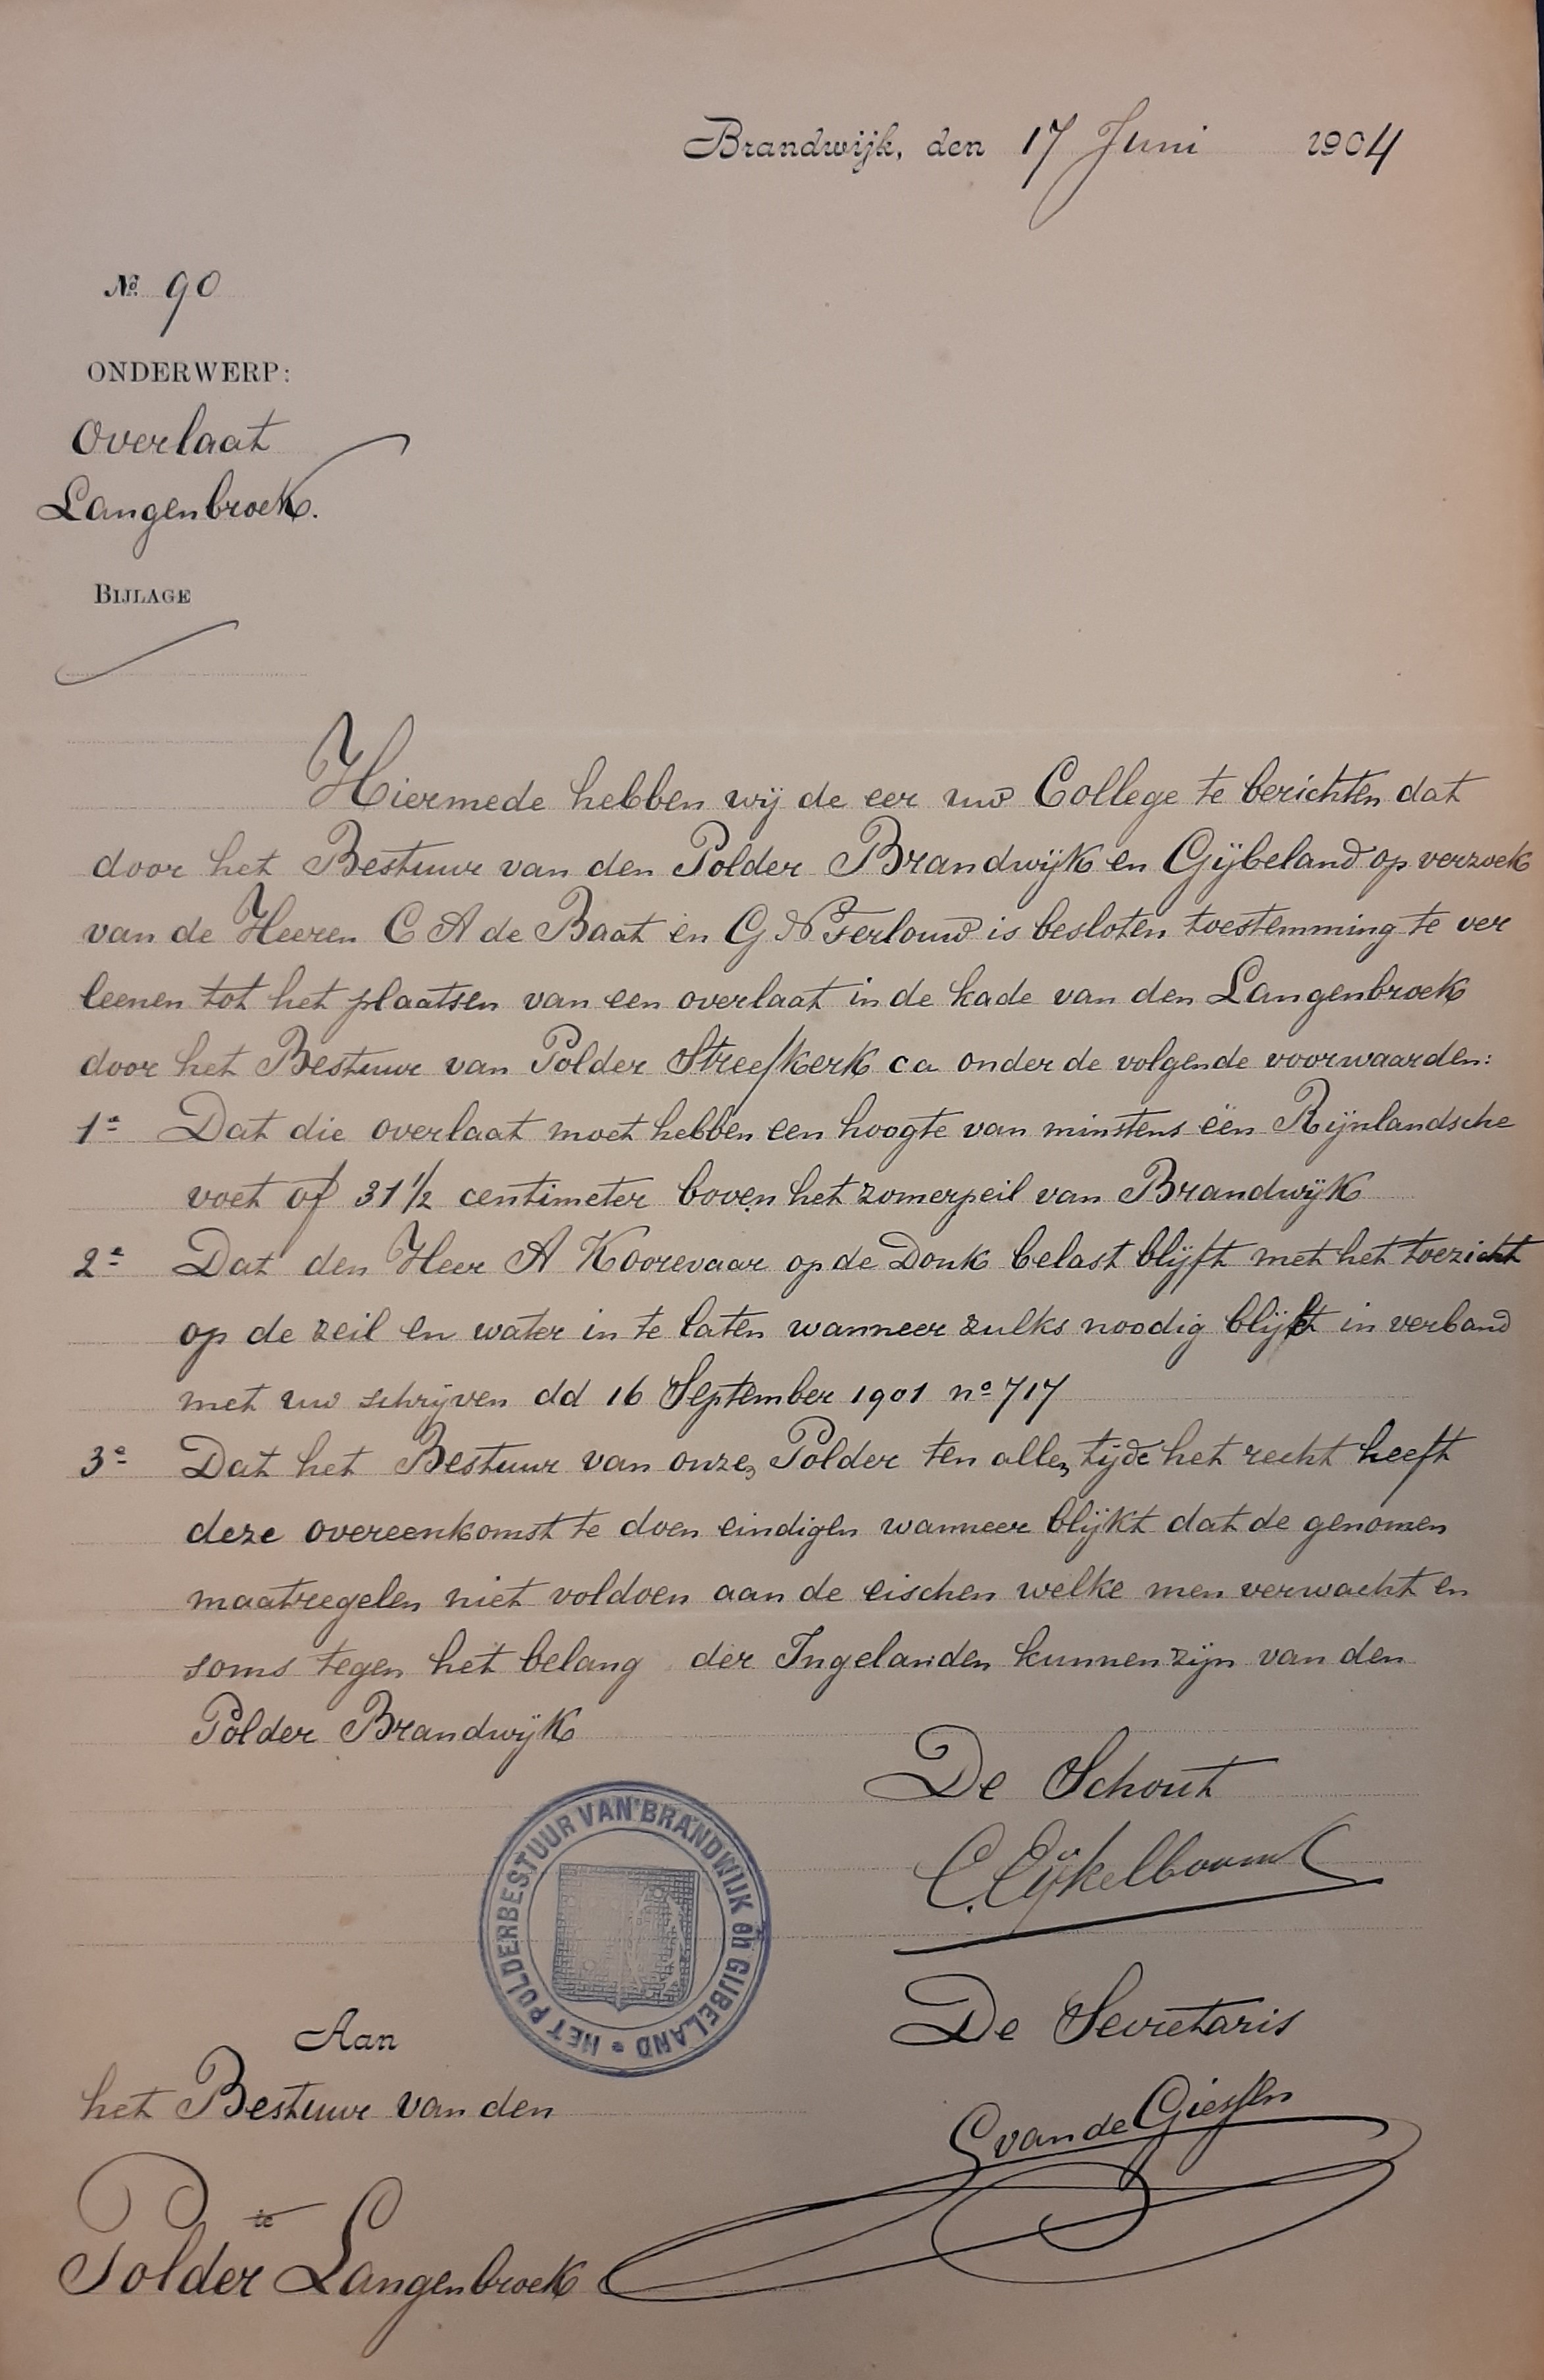 Brandwijk, den 17 Juni 1904
No. 90
ONDERWERP:
Overlaat
Langenbroek.
BIJLAGE
Hiermede hebben wij de eer uw College te berichten dat
door het Bestuur van den Polder Brandwijk en Gijbeland op verzoek
van de Heeren C A de Baat en G N Terlouw is besloten toestemming te ver
leenen tot het plaatsen van een overlaat in de kade van den Langenbroek
door het Bestuur van Polder Streefkerk ca onder de volgende voorwaarden:
1e Dat die overlaat moet hebben een hoogte van minstens ëën Rijnlandsche
voet of 31 1/2 centimeter boven het zomerpeil van Brandwijk
2e Dat den Heer A Koorevaar op de Donk belast blijft met het toezicht
op de zeil en water in te laten wanneer zulks noodig blijkt in verband
met uw schrijven dd 16 September 1901 no 717
3e Dat het Bestuur van onzen Polder ten allen tijde het recht heeft
deze overeenkomst te doen eindigen wanneer blijkt dat de genomen
maatregelen niet voldoen aan de eischen welke men verwacht en
soms tegen het belang der Ingelanden kunnen zijn van den
Polder Brandwijk
De Schout
C. Eijkelboom
HET POLDERBESTUUR VAN BRANDWIJK en GIJBELAND
De Secretaris
G van de Giessen
Aan
het Bestuur van den
te
Polder Langenbroek